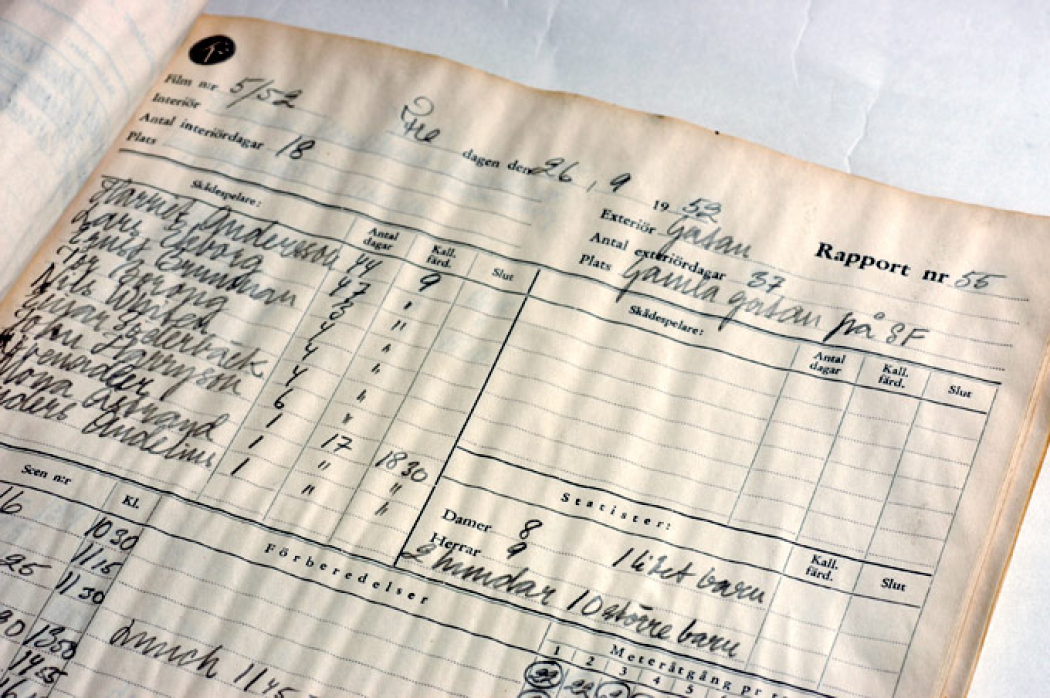 Film n:r 5/52
Interiör
Antal interiördagar 18
Plats
Fre dagen den 26, 9 1952
Exteriör Gatan
Antal exteriördagar 37
Plats Gamla gatan på SF
Rapport nr 55
Skådespelare: Antal dagar Kall. färd. Slut
Harriet Andersson 44 9
Lars Ekborg 47 "
Ernst Brunman 3 "
Tor Borong 4 "
Nils Whiten 4 "
Gustaf Söderbäck 4 "
John Harryson 6 "
1 17 18 30
Mona 1 " "
Anders Andelius 1 " "
Skådespelare: Antal dagar Kall. färd. Slut
Statister: Kall. färd. Slut
Damer 8 1 litet barn
Herrar 9 10 större barn
2 hundar
Scen n:r Kl. Förberedelser
16 10 30
11 15
25 11 30
13 50
14 25
Lunch 11 45
Meteråtgång pr
1 2 3 4 5